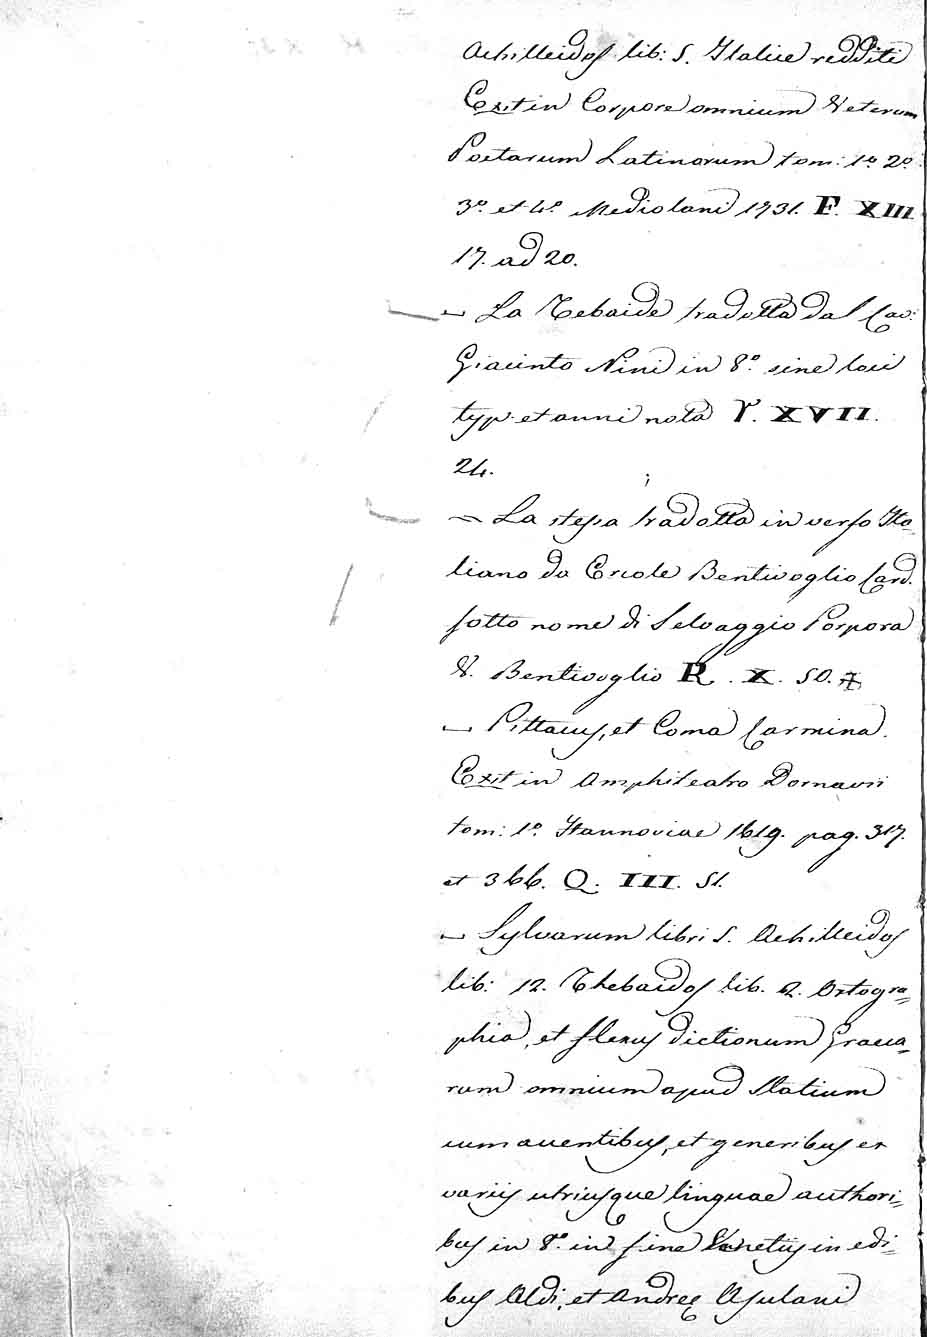 Achilleidos lib: 5. Italice redditi
Exit in Corpore omnium Veterum
Poetarum Latinorum tom: 1.º 2.º
3.º et 4.º Mediolani 1731. F. XIII
17. ad 20.
— La Tebaide tradotta dal Cav:
Giacinto Nini in 8.º sine loci
typ. et anni nota Y. XVII.
24.
= La stessa tradotta in verso Ita=
liano da Ercole Bentivoglio Card.
sotto nome di Selvaggio Porpora
V. Bentivoglio R. X. 50.
— Pittacus, et Coma Carmina.
Exit in Amphiteatro Dornavii
tom: 1.º Hannoviae 1619. pag. 317.
et 366. Q. III. 51.
— Sylvarum libri 5. Achilleidos
lib: 12. Thebaidos lib. 2. Ortogra=
phia, et flexus dictionum Graeca=
rum omnium apud Statium
cum accentibus, et generibus ex
variis utriusque linguae authori=
bus in 8.º in fine Venetiis in edi=
bus Aldi, et Andreę Asulani